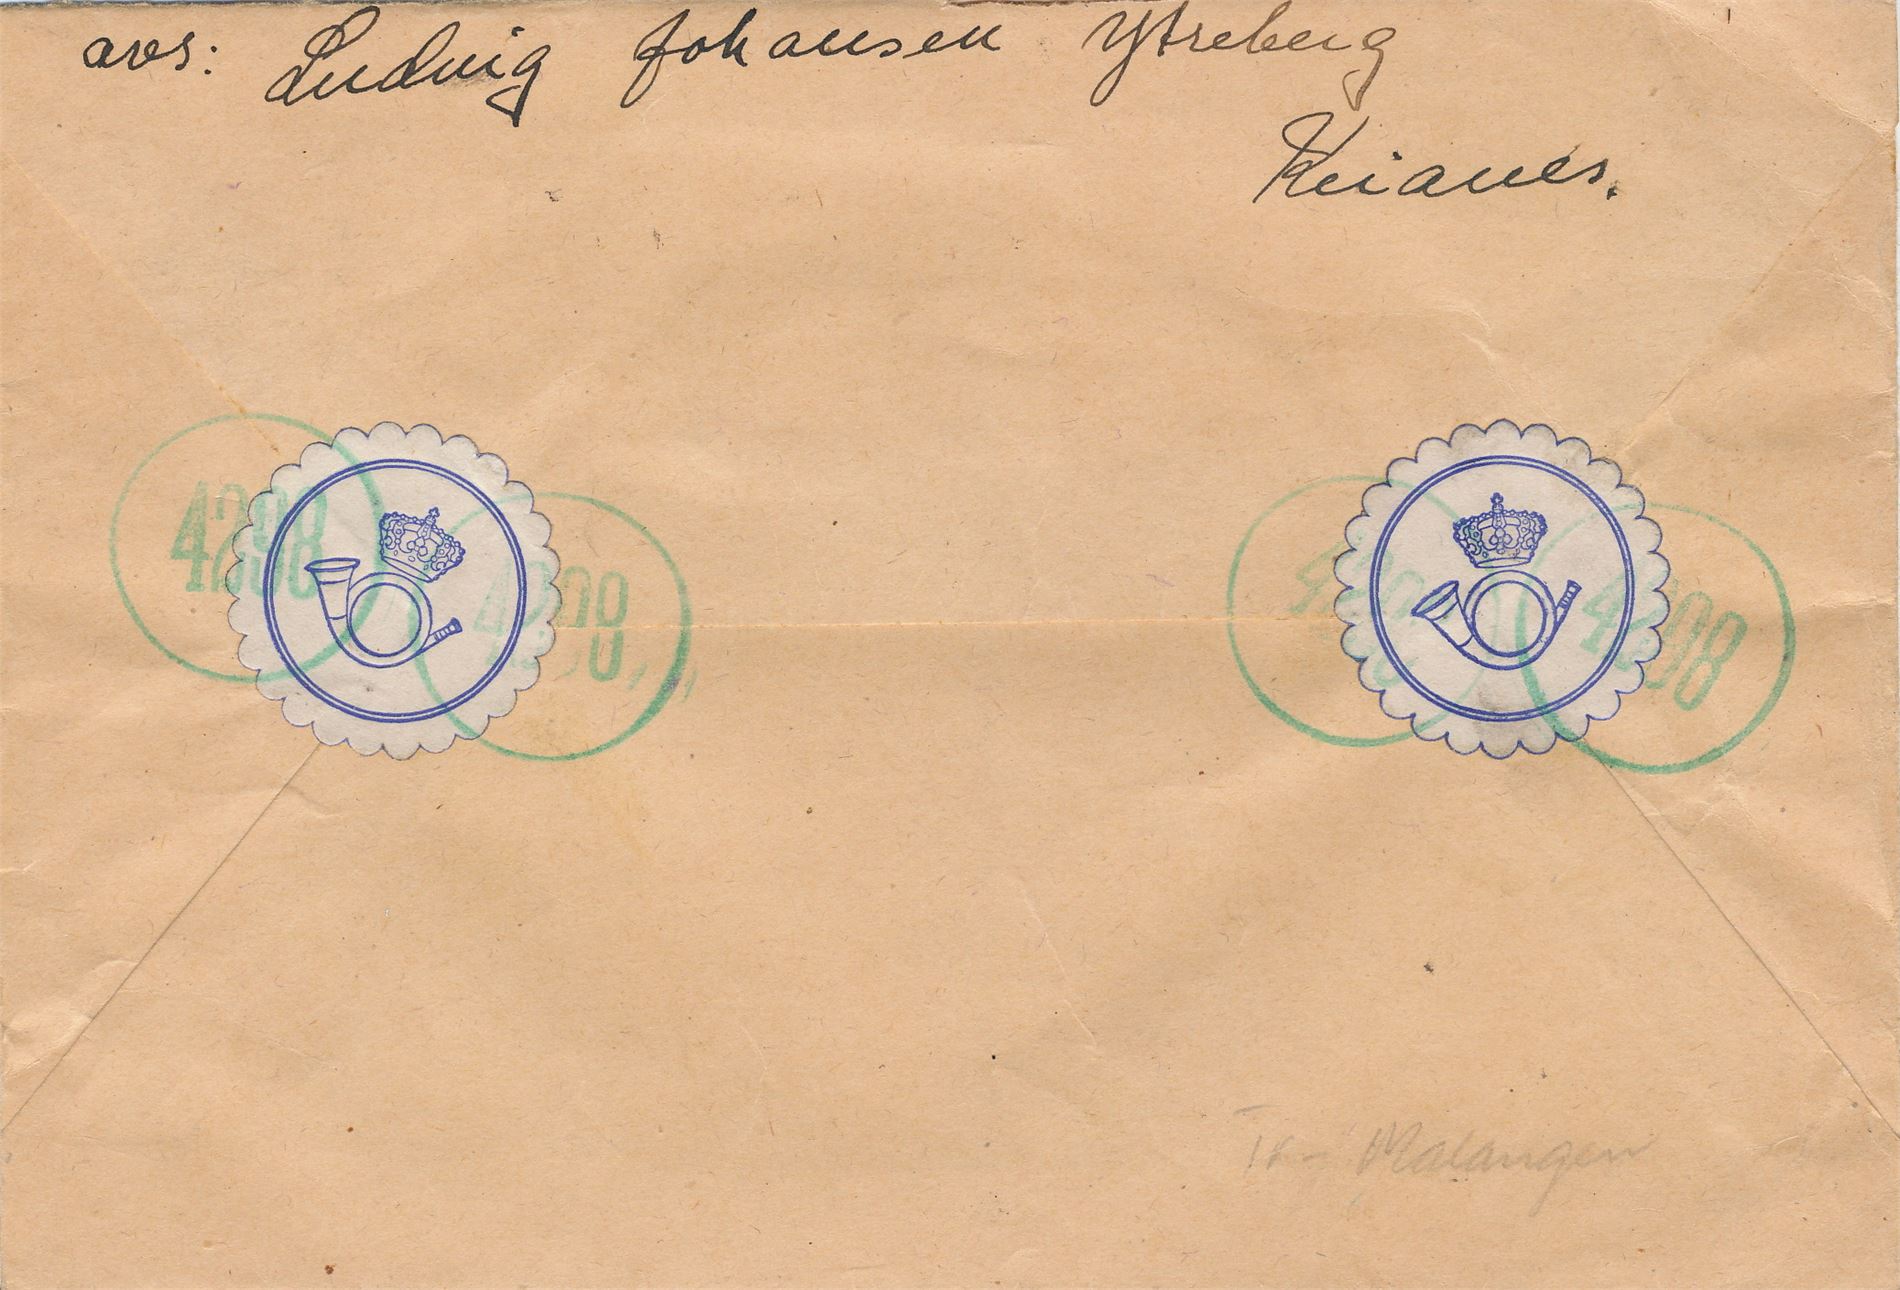 avs: Ludvig Johansen Ytreberg
Keianes.
4298
4298
4298
4298
Tr- Malangen